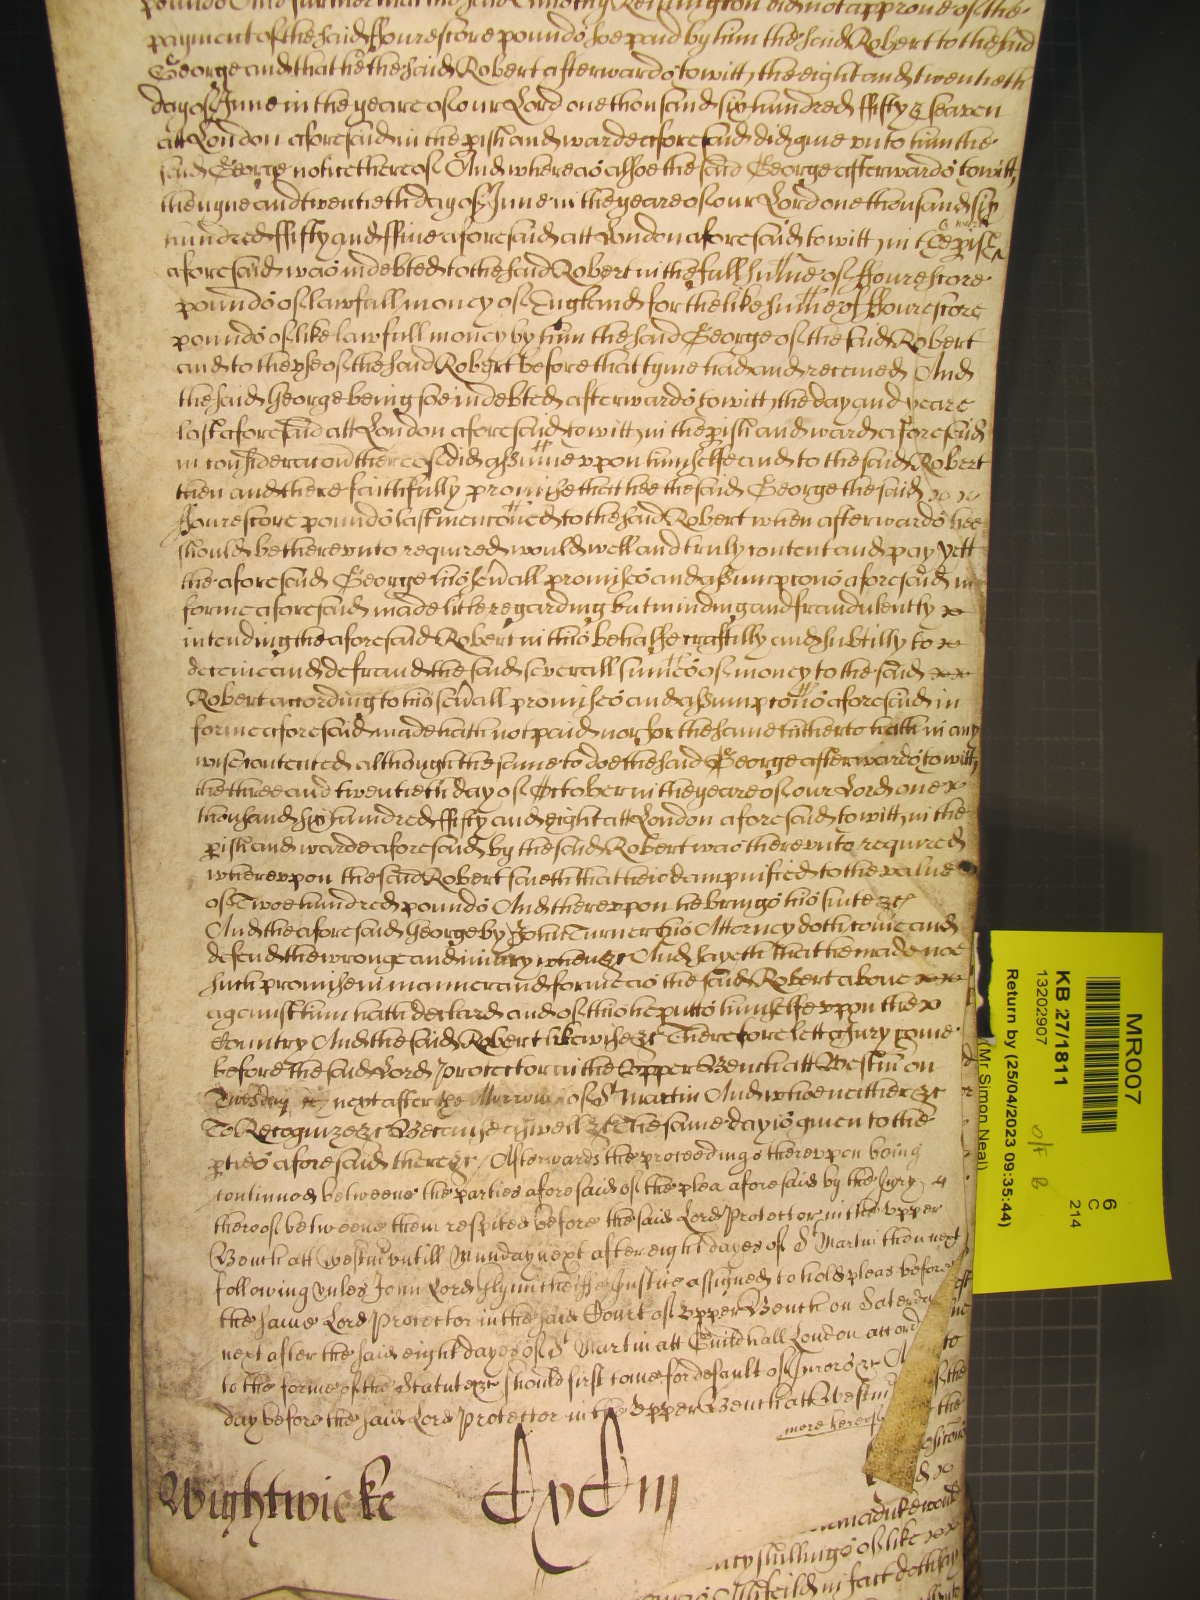 pounds And further that the said Timothy Kennington did not approve of the
payment of the said ffourescore pounds soe paid by him the said Robert to the said
George and that he the said Robert afterwards to witt the eight and twentieth
day of June in the yeare of our Lord one thousand six hundred ffifty & seaven
att London aforesaid in the pish and warde aforesaid did give unto him the
said George notice thereof And whereas alsoe the said George afterwards to witt
the nyne and twentieth day of June in the yeare of our Lord one thousand six
hundred ffifty and ffive aforesaid att London aforesaid to witt in the pish & ward
aforesaid was indebted to the said Robert in the full summe of ffourescore
pounds of lawfull money of England for the like summe of ffourescore
pounds of like lawfull money by him the said George of the said Robert
and to the use of the said Robert before that tyme had and received And
the said George being soe indebted afterwards to witt the day and yeare
last aforesaid att London aforesaid to witt in the pish and ward aforesaid
in consideracon thereof did assume upon himselfe and to the said Robert
then and there faithfully promise that hee the said George the said
ffourescore pounds last menconed to the said Robert when afterwards hee
should be thereunto required would well and truly content and pay yett
the aforesaid George his sevall promises and assumpcons aforesaid in
forme aforesaid made little regarding but minding and fraudulently
intending the aforesaid Robert in this behalfe craftilly and subtilly to
deceive and defraud the said severall summes of money to the said
Robert according to his sevall promises and assumpcons aforesaid in
forme aforesaid made hath not paid nor for the same hitherto hath in any
wise contented although the same to doe the said George afterwards to witt
the three and twentieth day of October in the yeare of our Lord one
thousand six hundred ffifty and eight att London aforesaid to witt in the
pish and warde aforesaid by the said Robert was thereunto required
whereupon the said Robert saieth that he is dampnified to the value
of Twoe hundred pounds And thereupon he brings his suite &c
And the aforesaid George by John Turner his Attorney doth come and
defend the wronge and iniury when &c And sayeth that he made noe
such promise in manner and forme as the said Robert above
against him hath declard and of this he putts himselfe upon the
Country And the said Robert likewise &c Therefore lett a Jury come
before the said Lord Protector in the Upper Bench att Westm on
Tuesday next after the Morrow of St Martin And who neither &c
To Recognize &c Because aswell &c The same day is given to the
pties aforesaid there &c / Afterwards the proceedings thereupon being
continued betweene the parties aforesaid of the plea aforesaid by the Jury
thereof betweene them respited before the said Lord Protector in the upper
Bench att Westm untill Munday next after eight dayes of St Martin then next
following unles John Lord Glynn Cheife Justice assigned to hold pleas before
the same Lord Protector in the said Court of upper Bench on Saterday
next after the said eight dayes of St Martin att Guildhall London accord
to the forme of the Statute &c should first come for default of Jurors &c
day before the said Lord Protector in the upper Bench att Westm
more hereof
Wightwicke
MR007
KB 27/1811
13202907
Return by (25/04/2023 09:35:44)
(Mr Simon Neal)
6
C
214
O/F